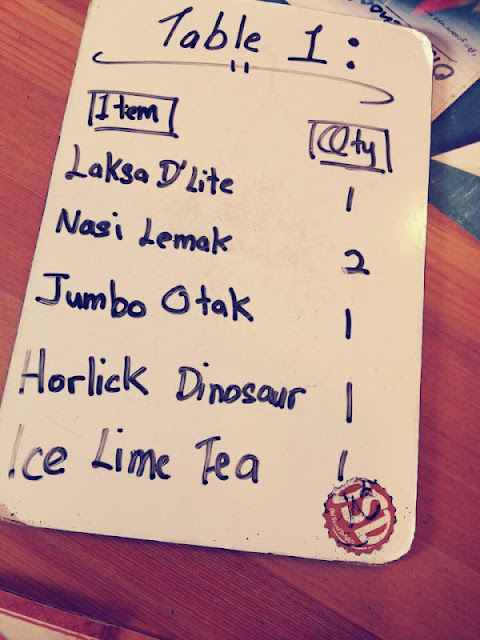 Table 1:
Item Qty
Laksa D'Lite 1
Nasi Lemak 2
Jumbo Otak 1
Horlick Dinosaur 1
Ice Lime Tea 1